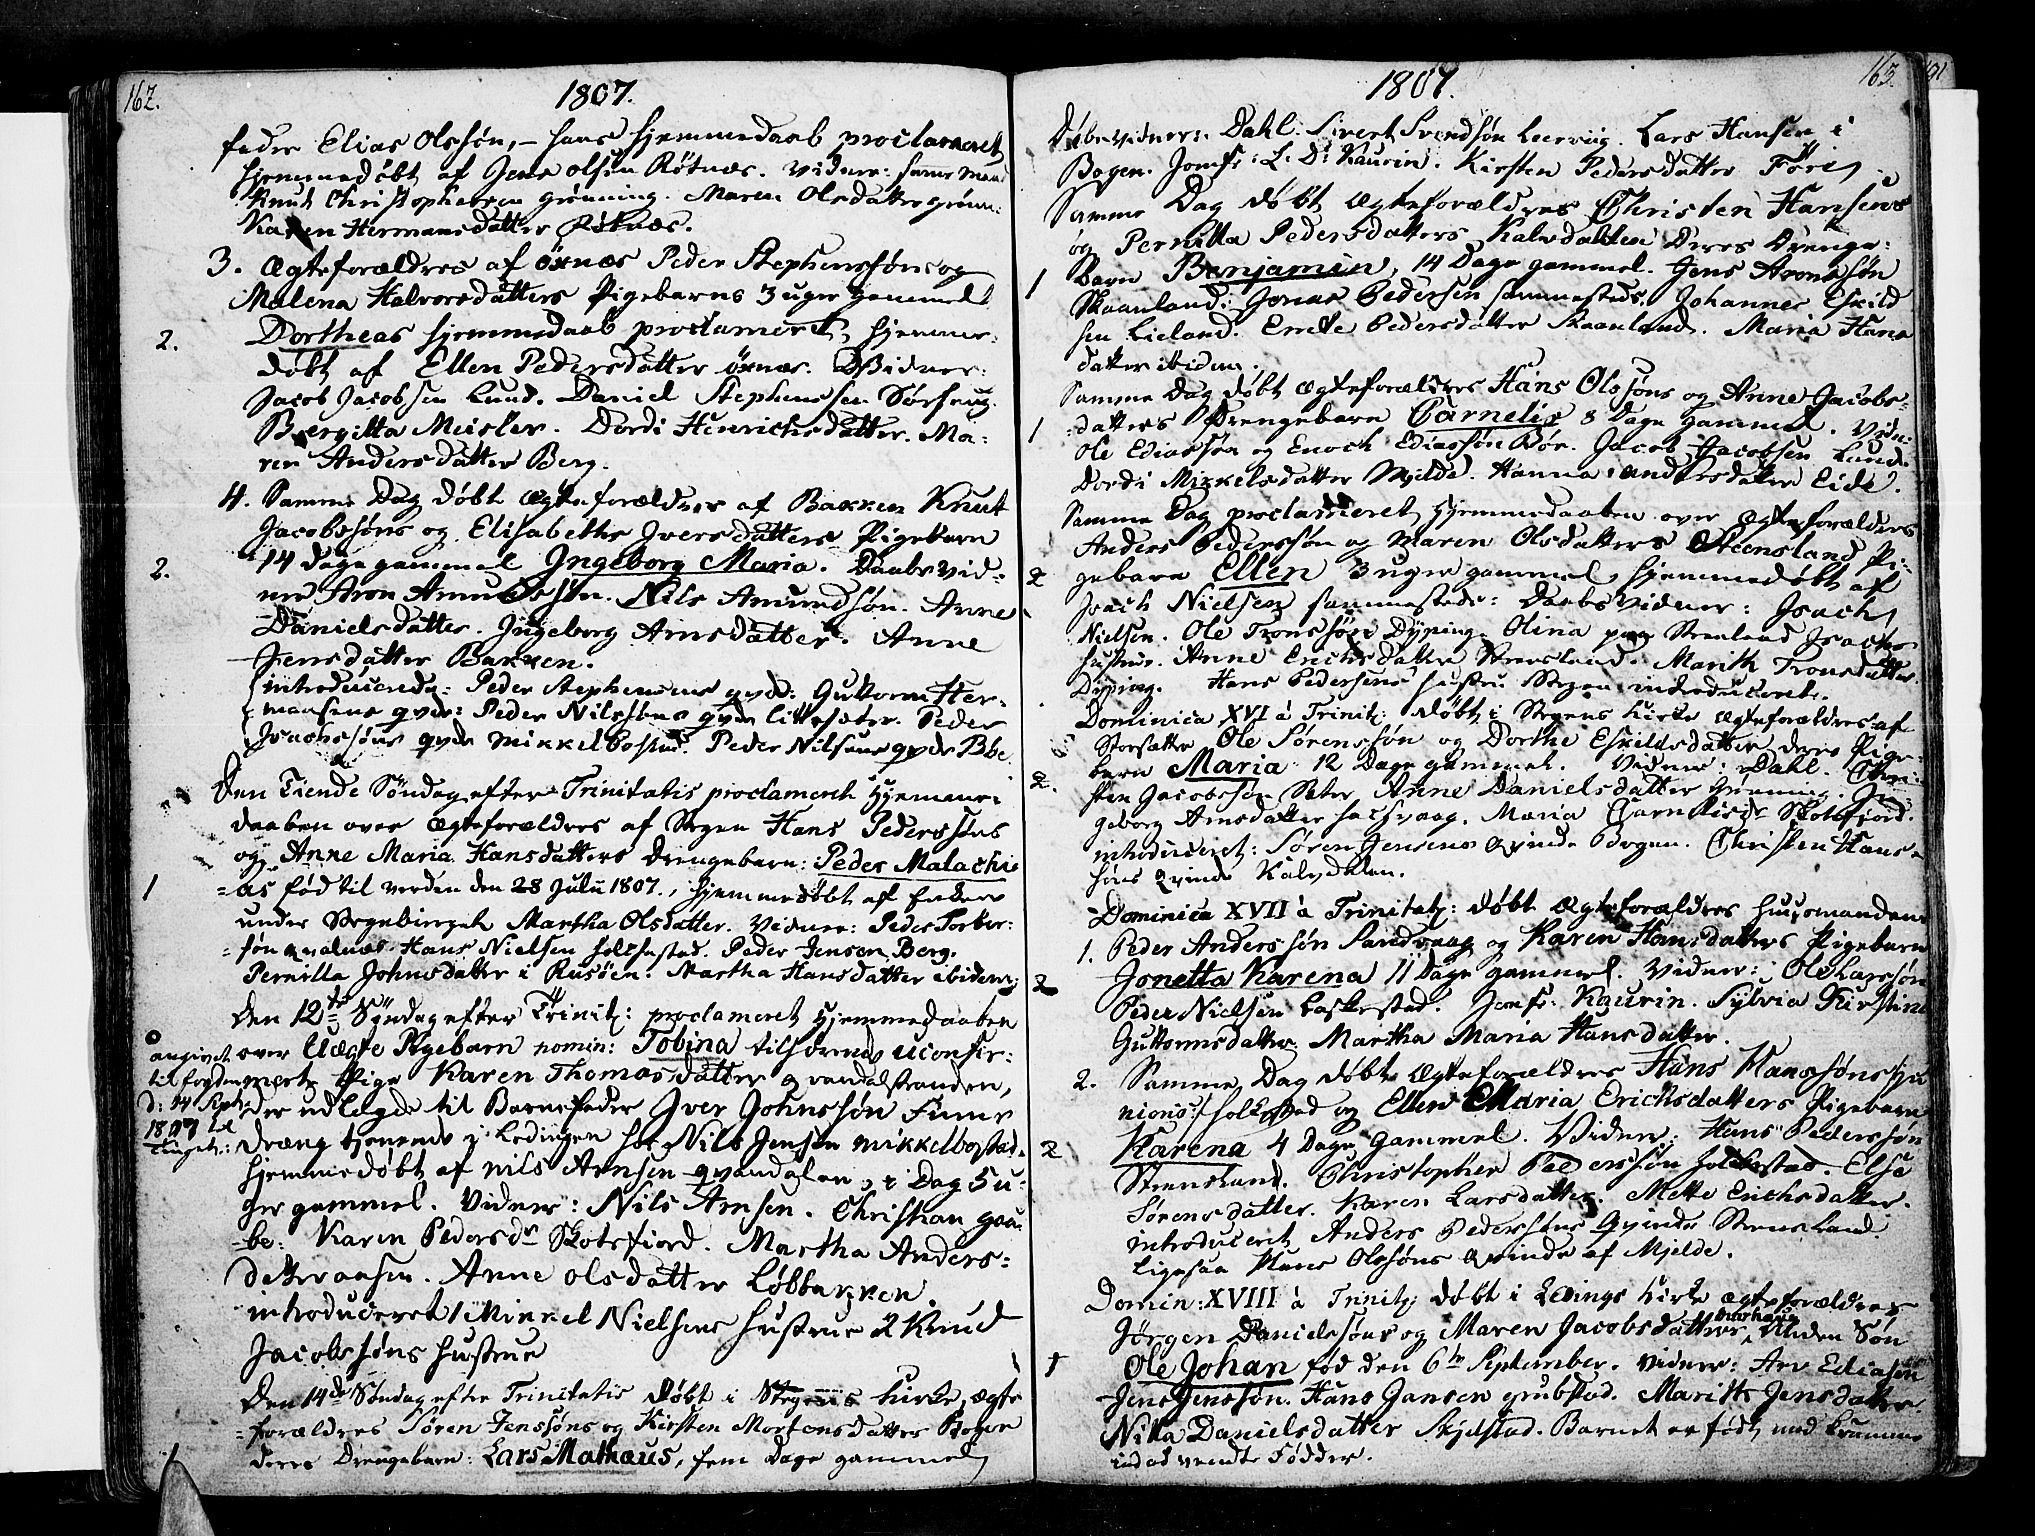 162.
1807.
fader Elias Olssøn, – hans hjemmedaab proclameret
hjemmedøbt af Jens Olsen Røtnæs. Vidner: samme Mand
Knud Christophersen Grønning. Maren Olsdatter Grønn:
Karen Hermansdatter Røtnæs.
3. Ægteforældres af Öxnæs Peder Stephenssøns og
Malena Halvorsdatters Pigebarns 3 uger gammel
2.
Dortheas hjemmedaab proclameret, hjemme-
døbt af Ellen Pedersdatter Öxnæs. Vidner:
Jacob Jacobsen Lund. Daniel Stephenssen
Bergitta Meisler. Dordi Henrichsdatter. Ma-
ren Andersdatter Berg.
4. Samme Dag døbt Ægteforældres af Bakken Knut
Jacobssøns og Elisabeths Iversdatters Pigebarn
2.
14 dage gammel Ingeborg Maria. Daabsvid-
ner Aron Amundssøn. Nils Amundsøn. Anne
Danielsdatter. Ingeborg Arnsdatter. Anne
Jensdatter Bakken.
introducerede: Peder Stephensens qvde: Guttorm Her-
mansens qvde: Peder Nilssøns qvde Littesæter. Peder
Isachssøns qvde Mikkelbostad. Peder Nilsens qvde Bøe.
Den Tiende Søndag efter Trinitatis proclameret Hjemme-
daaben over Ægteforældres af Stegen Hans Pederssøns
og Anne Maria Hansdatters Drengebarn: Peder Malachi-
1
as født til verden den 28 Julii 1807, hjemmedøbt af
under Martha Olsdatter. Vidner: Peder Torber-
søn Hans Nielsen Holkestad. Peder Jensen Berg.
Pernilla Johnsdatter i Martha Hansdatter ibidem
Den 12te Søndag efter Trinit: proclameret Hjemmedaaben
over Uægte Pigebarn nomin: Tobina tilhørende uconfir-
angivet
til fogden
d: 14 Sept.
1807
meert Pige Karen Thomasdatter Qvandalstranden,
der udlegde til Barnefader Iver Johnssøn
dræng tjenende i Lødingen hos Nils Jensen Mikkelbostad.
hjemmedøbt af Nils Arnsen Qvandalen, i Dag 5 u-
ger gammel. Vidner: Nils Arnsen. Christian Gaa-
be. Karen Pedersdr Skotsfiord. Martha Anders-
datter Aasen. Anne Olsdatter Løbbakken.
introduceret 1 Mikkel Nielsens Hustrue 2 Knud
Jacobssøns Hustrue
Den 14de Søndag efter Trinitatis døbt i Stegens Kirke, ægte
forældres Søren Jenssøns og Kirsten Mortensdatters Bogen
1
deres Drengebarn: Lars Mathæus, fem Dage gammel
163
1807.
Døbevidner: Dahl. Sivert Svendsøn Leervig. Lars Hansen i
Bogen. Jomfr: L. D: Kaurin. Kirsten Pedersdatter Före
Samme Dag døbt Ægteforældres Christen Hansens
og Pernilla Pedersdatters Kalvdalen Deres Drenge-
1
barn Benjamin, 14 Dage gammel. Jens Aronssøn
Skaanland. Jonas Pedersen sammesteds. Johannes Eskild-
sen Lieland. Pedersdatter Skaanland. Maria Hans
datter ibidem.
Samme Dag døbt Ægteforældres Hans Olssøns og Anne Jacobs-
1
datters Drengebarn Cornelis 8 Dage gammel. Vidn:
Ole Ediassøn og Enoch Ediassøn Bøe. Jacob Jacobsen Lund.
Dordi Mikkelsdatter Mjelde. Hanna Andersdatter Eide.
Samme Dag proclameret Hjemmedaaben over Ægteforældres
Anders Pederssøn og Maren Olsdatters Steensland Pi-
2
gebarn Ellen 3 uger gammel, hjemmedøbt af
Isach Nielsen sammesteds: Daabsvidner: Isach
Nielsen. Ole Tronssøn Dyping. Olina paa Steensland Isachs
Hustrue. Anne Erichsdatter Steensland. Marith Tronsdatter
Dyping. Hans Pedersens Hustru Stegen introduceret.
Dominica XVI à Trinit: døbt i Stegens Kirke Ægteforældres af
Storsætter Ole Sørenssøn og Dorthe Eskildsdatter deres Pige-
2.
barn Maria 12 Dage gammel. Vidner: Dahl. Chri-
sten Jacobssøn Sæter. Anne Danielsdatter Grønning. In-
geborg Arnsdatter Maria Skotsfjord.
introduceret: Søren Jensens Qvinde Bogen. Christen Hans-
søns Qvinde Kalvdalen.
Dominica XVII à Trinitat: døbt Ægteforældres Huusmandens
1. Peder Anderssøn Sandvaag og Karen Hansdatters Pigebarn
2
Jonetta Karena 11 Dage gammel. Vidner: Ole Larssøn
Peder Nielsen Laskestad. Jomfr: Kaurin. Sylvia Kirstine
Guttormsdatter. Martha Maria Hansdatter.
2. Samme Dag døbt Ægteforældres Hans Hanssøns (ju
nioris) Holkestad og Ellen Maria Erichsdatters Pigebarn
2
Karena 4 Dage gammel. Vidner: Hans Pederssøn
Steensland. Christopher Pederssøn Holkestad. Else
Sørensdatter. Karen Larsdatter. Mette Erichsdatter.
introduceret Anders Pederssøns Qvinde Steensland
Ligesaa Hans Olssøns Qvinde af Mjelde.
Domin: XVIII à Trinit: døbt i Lødings Kirke Ægteforældres
Jørgen Danielssøns og Maren Jacobsdatters liden Søn
1
Ole Johan fød den 6te September. Vidner: Ediasøn
Jens Jenssøn. Hans Jansen Grubstad. Maritt Jensdatter.
Nilla Danielsdatter Skjelstad. Barnet er født med krumme
indad vendte Fødder.